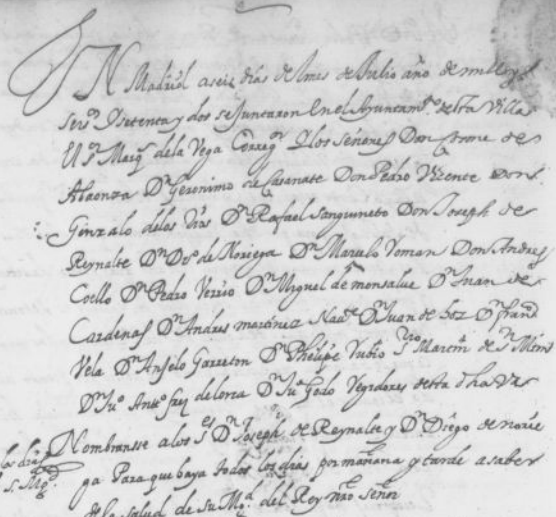 En Madrid a seis días del mes de Julio año de mill y
seisº y setenta y dos se Juntaron En el Ayuntamtº desta Villa
El sr Marqs de la Vega Corregr y los señores Don Cosme de
Abaonza Dn Geronimo de Casanate Don Pedro Vicente Don
Gonzalo de los Ríos Dn Rafael Sanguineto Don Joseph de
Reynalte Dn Dgº de Noriega Dn Marcelo Roman Don Andres
Coello Dn Pedro Verrio Dn Miguel de monsalue Dn Juan de
Cardenas Dn Andres martinez Dn Juan de hoz Dn frand
Vela Dn Anjelo Garreton Dn Phelipe Rubio Martin de Sn
Dn Juº Antº de lorca Dn Juº Rexidores desta dha Va
Nombransse a los srs Dn Joseph de Reynalte y Dn Diego de norie
ga Para que baya todos los días por mañana y tarde a saber
de la salud de su Mgd del Rey nro señor